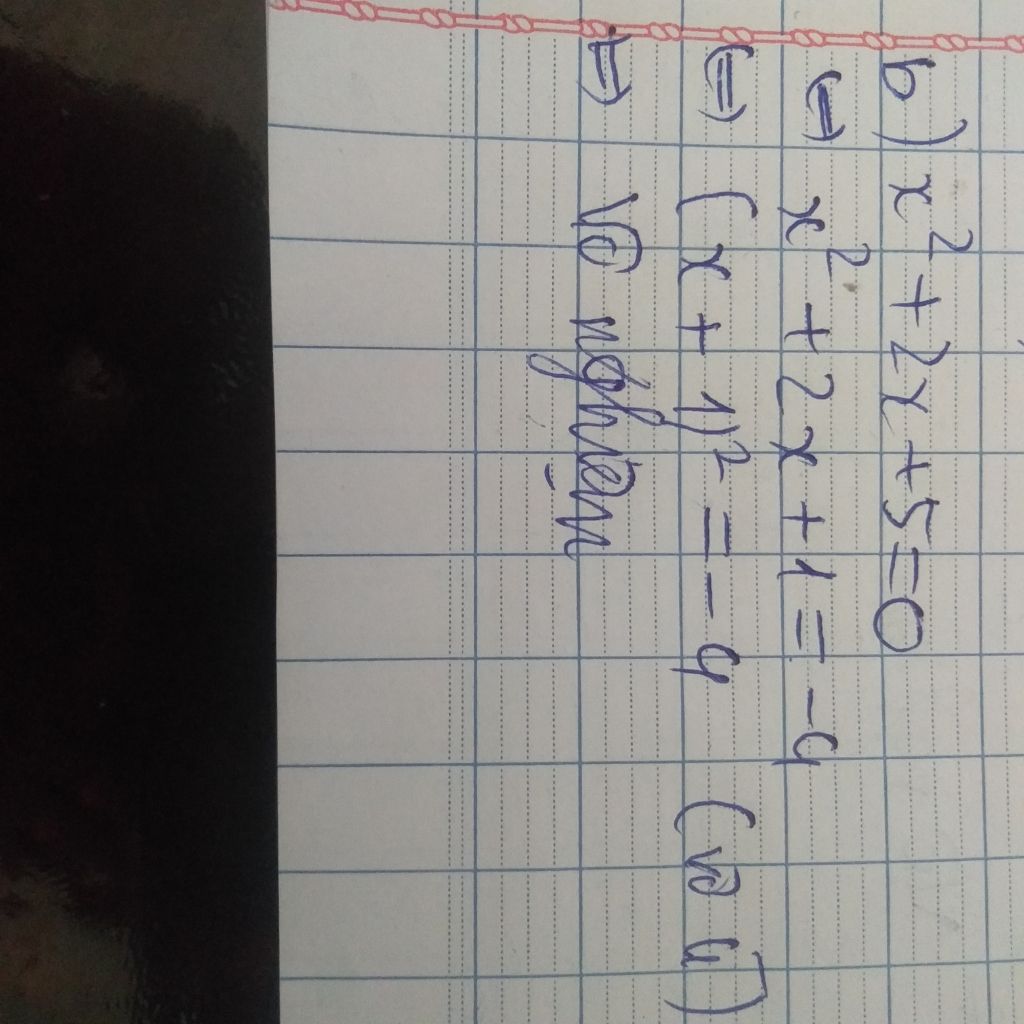 b) x² + 2x + 5 = 0
⇔ x² + 2x + 1 = -4
⇔ (x + 1)² = -4 (vô lí)
⇒ Vô nghiệm